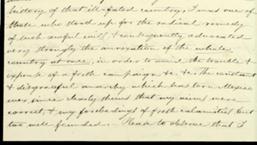 history of that ill-fated country. I was one of
those who stood up for the radical remedy
of such awful evil, & consequently advocated
very strongly the annexation of the whole
country at once, in order to avoid the trouble &
expense of a fresh campaign &c &c The constant
& disgraceful anarchy which had torn Mexico
ever since clearly showed that my views were
correct, & my forebodings of fresh calamities but
too well founded. Please to observe that I